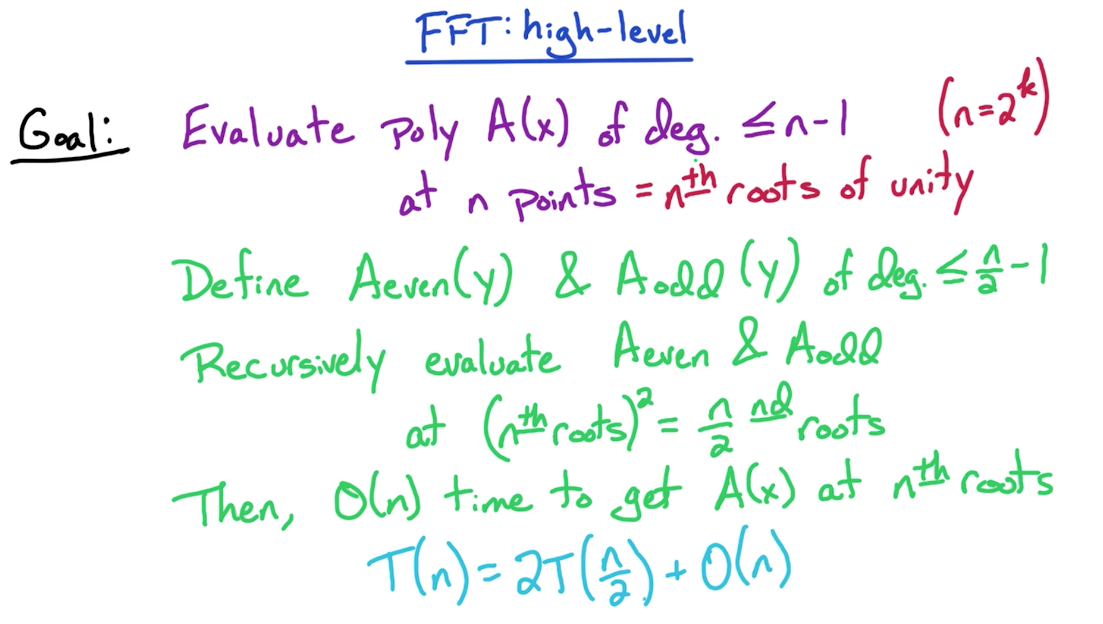 FFT: high-level
Goal: Evaluate poly A(x) of deg. ≤ n-1 (n=2^k)
at n points = n^th roots of unity
Define Aeven(y) & Aodd(y) of deg. ≤ n/2 - 1
Recursively evaluate Aeven & Aodd
at (n^th roots)^2 = n/2 nd roots
Then, O(n) time to get A(x) at n^th roots
T(n) = 2T(n/2) + O(n)